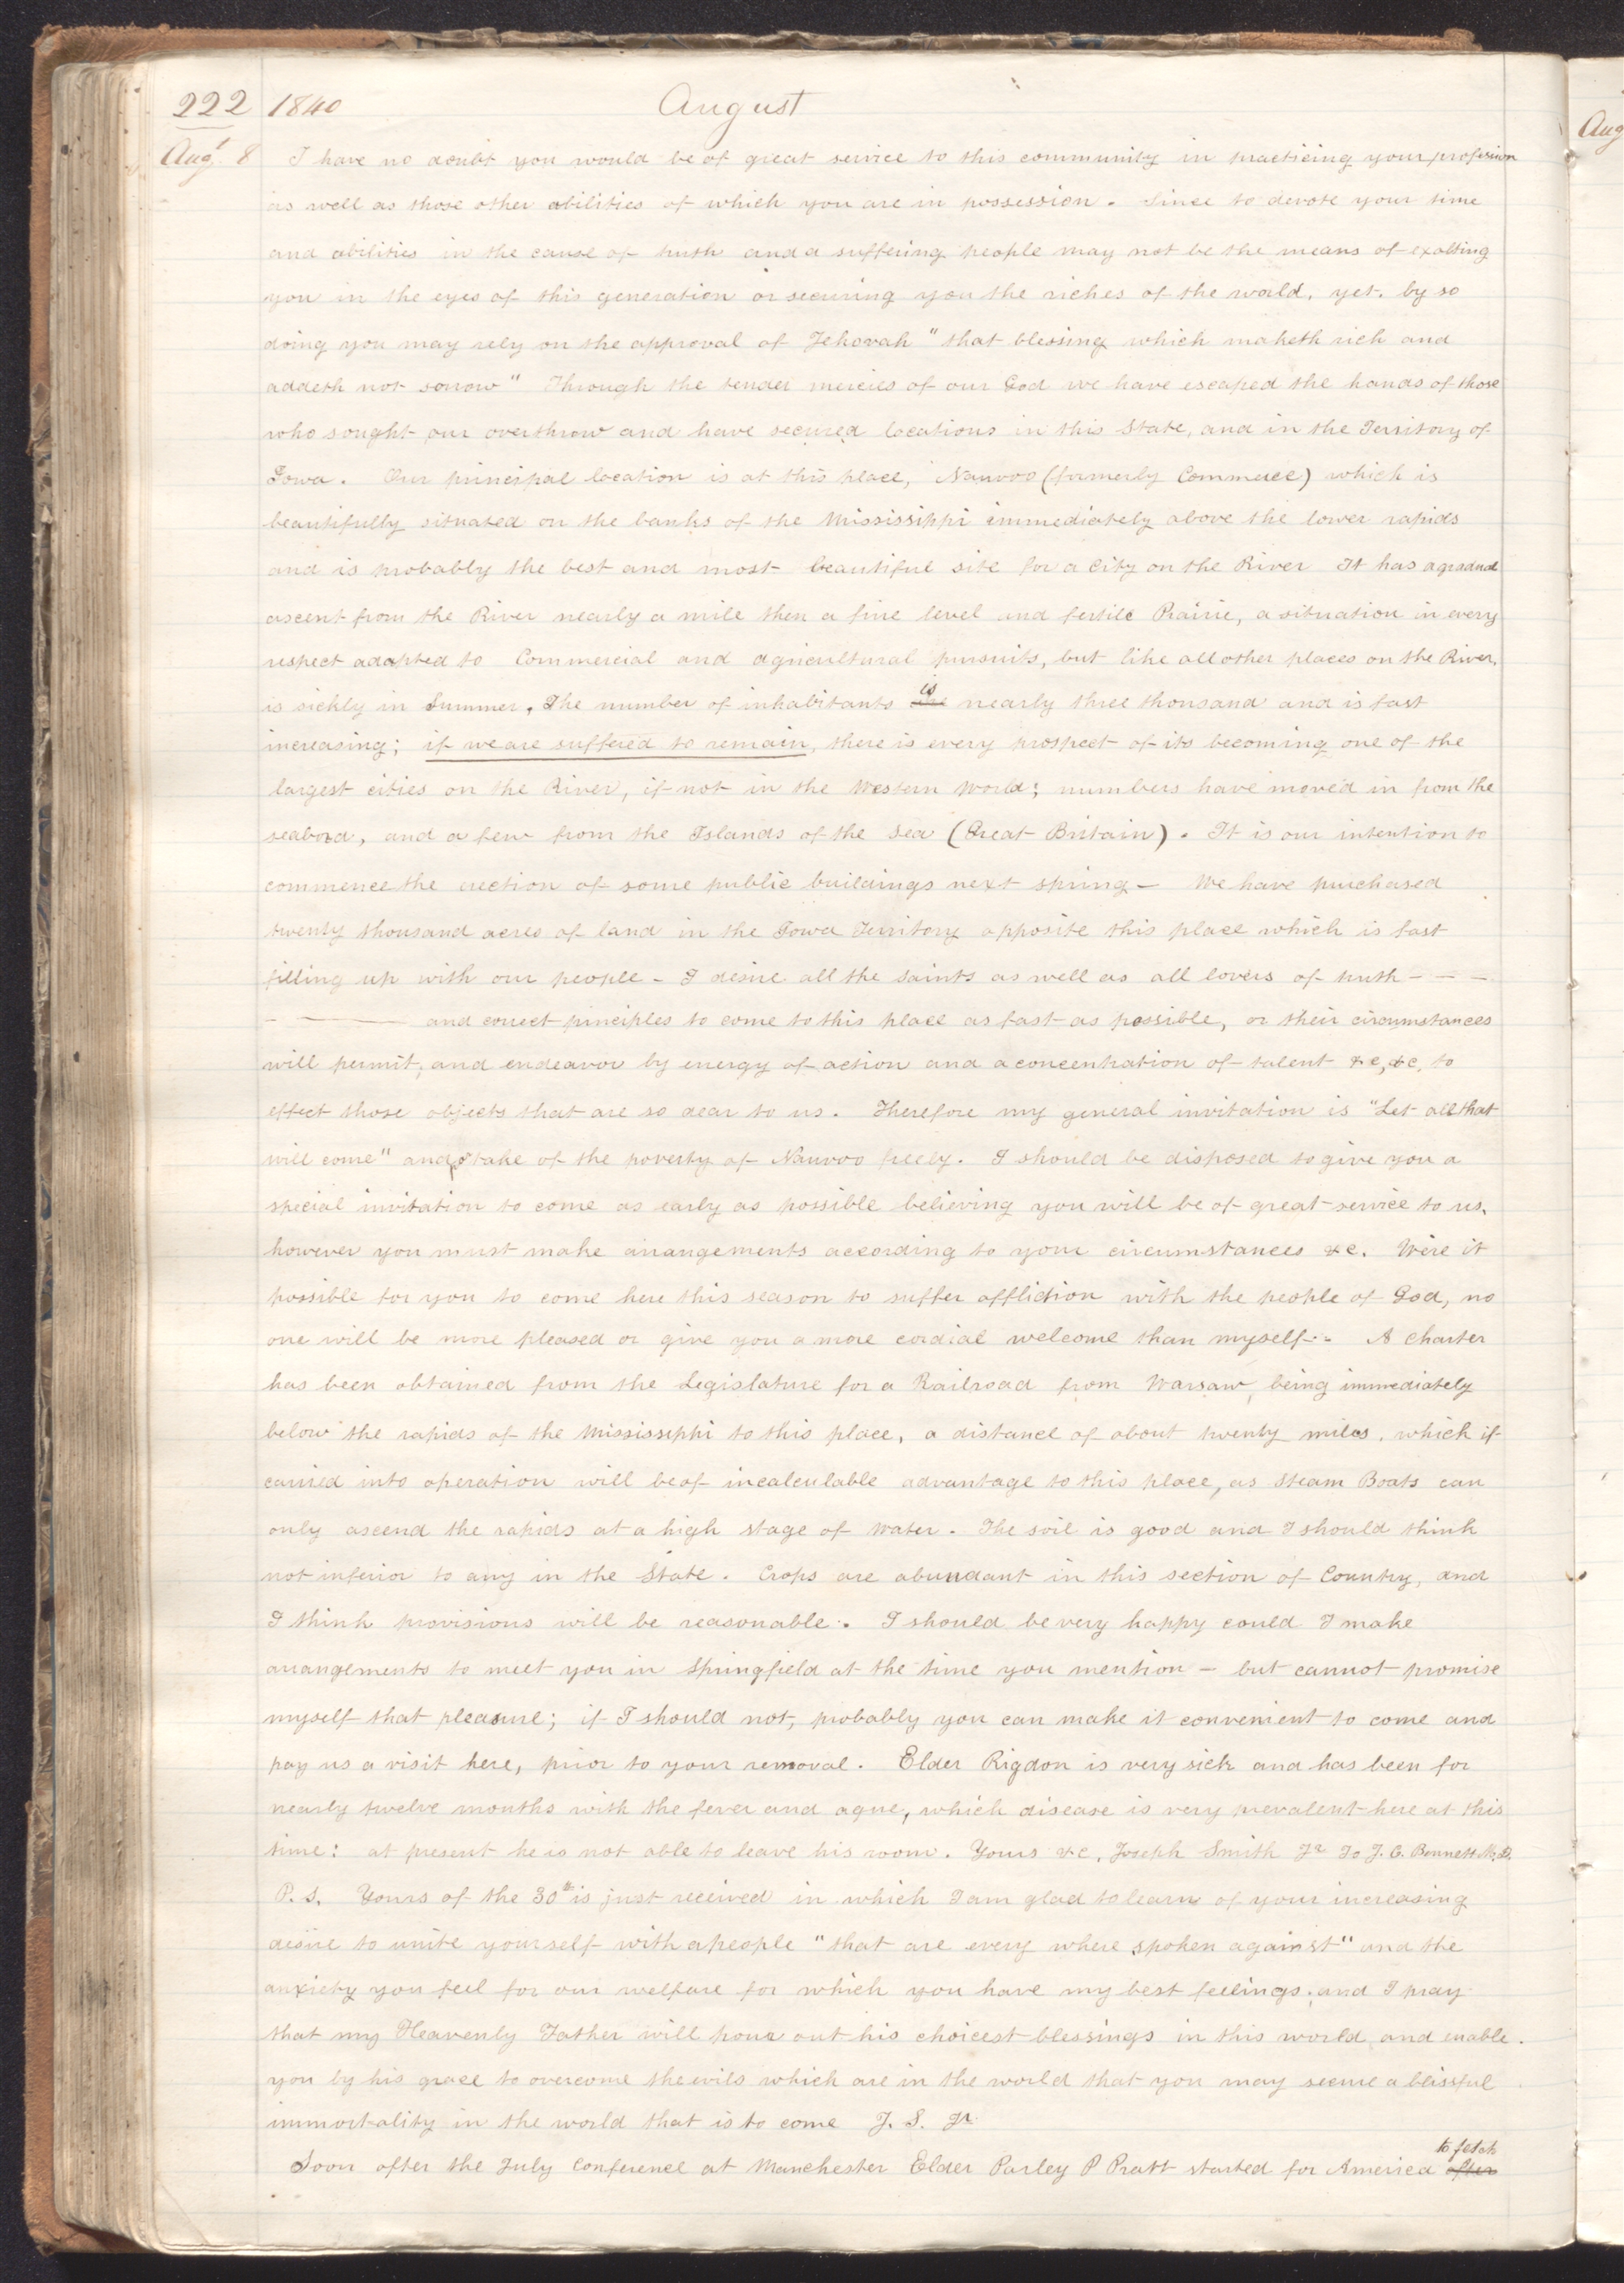 222 1840 August
Augt. 8 I have no doubt you would be of great service to this community in practicing your profession
as well as those other abilities of which you are in possession. Since to devote your time
and abilities in the cause of truth and a suffering people may not be the means of exalting
you in the eyes of this generation or securing you the riches of the world, yet. by so
doing you may rely on the approval of Jehovah "that blessing which maketh rich and
addeth not sorrow" Through the tender mercies of our God we have escaped the hands of those
who sought our overthrow and have secured locations in this State, and in the Territory of
Iowa. Our principal location is at this place, Nauvoo (formerly Commerce) which is
beautifully situated on the banks of the Mississippi immediately above the lower rapids
and is probably the best and most beautiful site for a City on the River It has a gradual
ascent from the River nearly a mile then a fine level and fertile Prairie, a situation in every
respect adapted to Commercial and agricultural pursuits, but like all other places on the River,
is sickly in Summer. The number of inhabitants is nearly three thousand and is fast
increasing; if we are suffered to remain, there is every prospect of its becoming one of the
largest cities on the River, if not in the Western World; numbers have moved in from the
seabord, and a few from the Islands of the Sea (Great Britain). It is our intention to
commence the erection of some public buildings next spring - We have purchased
twenty thousand acres of land in the Iowa Territory opposite this place which is fast
filling up with our people - I desire all the Saints as well as all lovers of truth - - -
- —— and correct principles to come to this place as fast as possible, or their circumstances
will permit, and endeavor by energy of action and a concentration of talent &c, &c, to
effect those objects that are so dear to us. Therefore my general invitation is "Let all that
will come" and ptake of the poverty of Nauvoo freely. I should be disposed to give you a
special invitation to come as early as possible believing you will be of great service to us,
however you must make arrangements according to your circumstances &c. Were it
possible for you to come here this season to suffer affliction with the people of God, no
one will be more pleased or give you a more cordial welcome than myself. - A charter
has been obtained from the Legislature for a Railroad from Warsaw, being immediately
below the rapids of the Mississippi to this place, a distance of about twenty miles, which if
carried into operation will be of incalculable advantage to this place, as Steam Boats can
only ascend the rapids at a high stage of Water. The soil is good and I should think
not inferior to any in the State. Crops are abundant in this section of Country, and
I think provisions will be reasonable. I should be very happy could I make
arrangements to meet you in Springfield at the time you mention - but cannot promise
myself that pleasure; if I should not, probably you can make it convenient to come and
pay us a visit here, prior to your removal. Elder Rigdon is very sick and has been for
nearly twelve months with the fever and ague, which disease is very prevalent here at this
time: at present he is not able to leave his room. Yours &c, Joseph Smith Jr To J. C. Bennett M.D.
P. S. Yours of the 30th is just received in which I am glad to learn of your increasing
desire to unite yourself with a people "that are every where spoken against" and the
anxiety you feel for our welfare for which you have my best feelings; and I pray
that my Heavenly Father will pour out his choicest blessings in this world and enable
you by his grace to overcome the evils which are in the world that you may secure a blissful
immortality in the world that is to come J. S. Jr
Soon after the July Conference at Manchester Elder Parley P Pratt started for America after to fetch
Aug